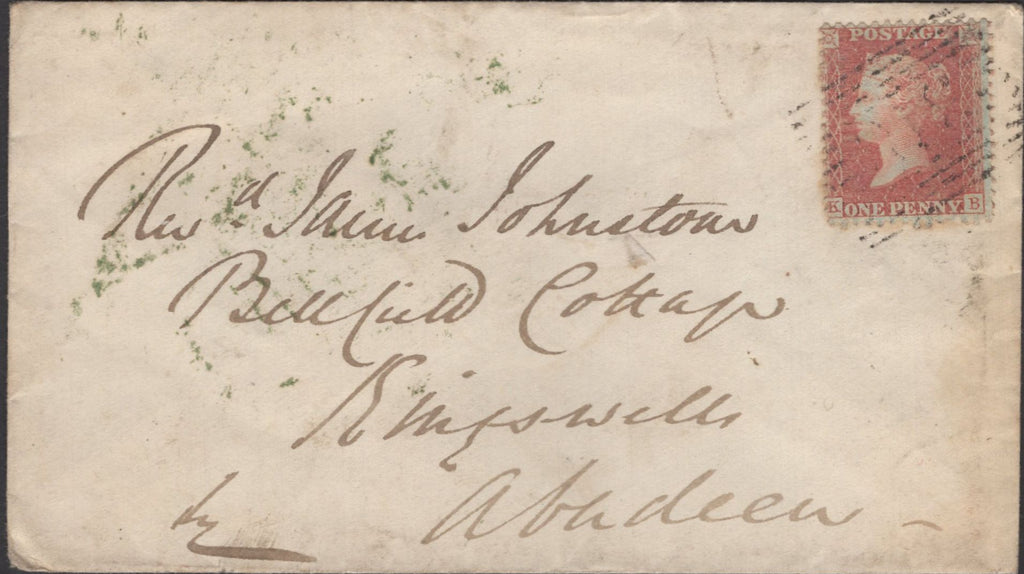 POSTAGE
K ONE PENNY B
Revd. James Johnstone
Bellfield Cottage
Kingswells
by Aberdeen